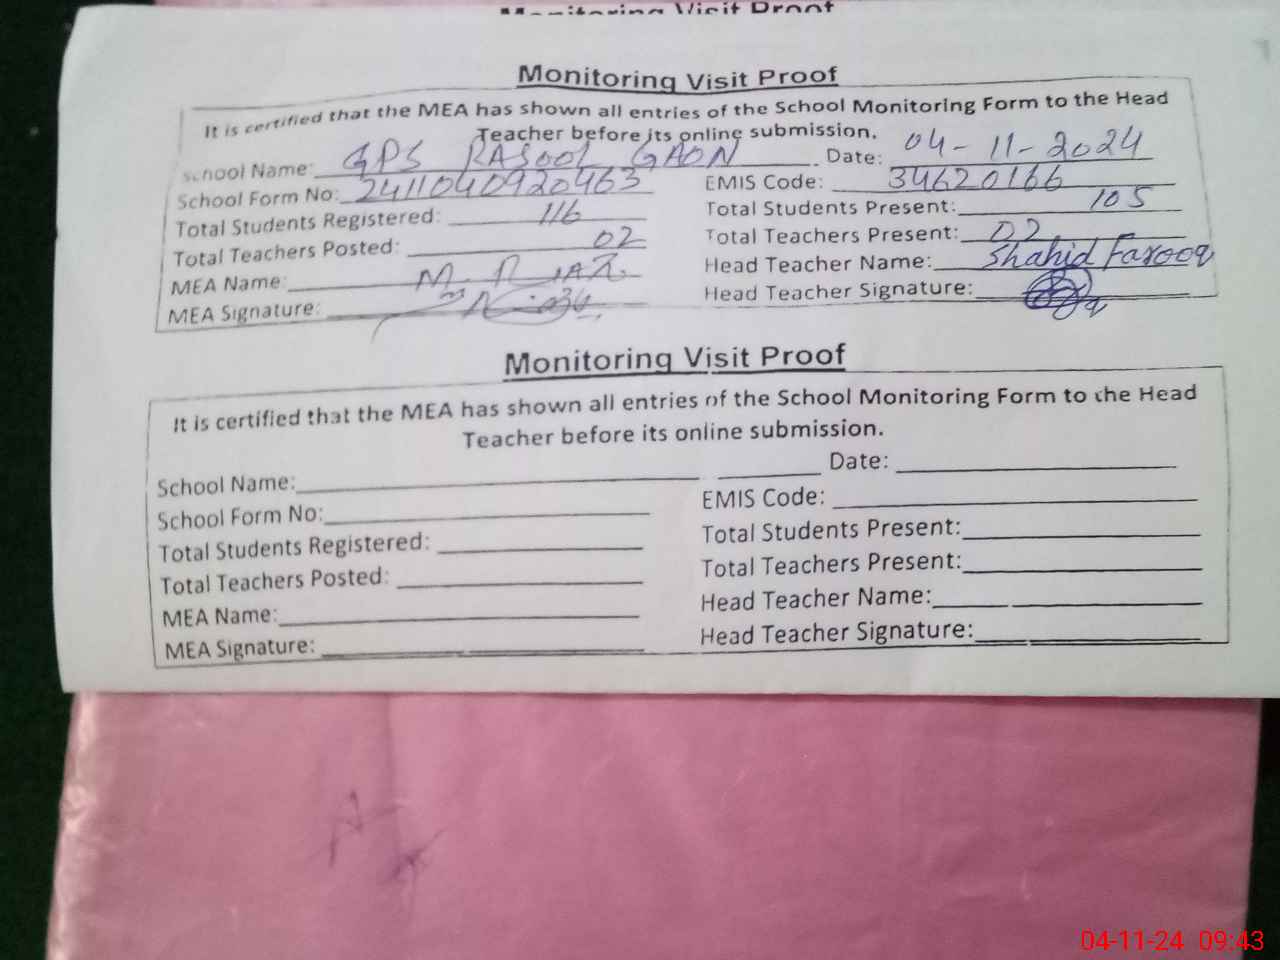 Monitoring Visit Proof
Monitoring Visit Proof
It is certified that the MEA has shown all entries of the School Monitoring Form to the Head
Teacher before its online submission.
School Name: GPS RASOOL GAON Date: 04-11-2024
School Form No: 2411040920463 EMIS Code: 34620166
Total Students Registered: 116 Total Students Present: 105
Total Teachers Posted: 02 Total Teachers Present: 02
MEA Name: M. RIAZ. Head Teacher Name: Shahid Farooq
MEA Signature: Head Teacher Signature:
Monitoring Visit Proof
It is certified that the MEA has shown all entries of the School Monitoring Form to the Head
Teacher before its online submission.
School Name: Date:
School Form No: EMIS Code:
Total Students Registered: Total Students Present:
Total Teachers Posted: Total Teachers Present:
MEA Name: Head Teacher Name:
MEA Signature: Head Teacher Signature:
04-11-24 09:43